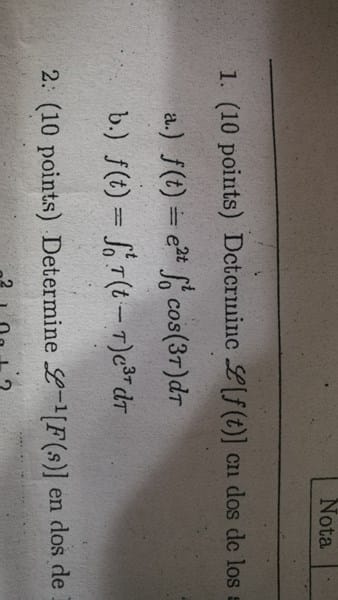 Nota
1. (10 points) Determine ℒ[f(t)] en dos de los
a.) f(t) = e^{2t} ∫_0^t cos(3τ)dτ
b.) f(t) = ∫_0^t τ(t − τ)e^{3τ}dτ
2. (10 points) Determine ℒ^{-1}[F(s)] en dos de